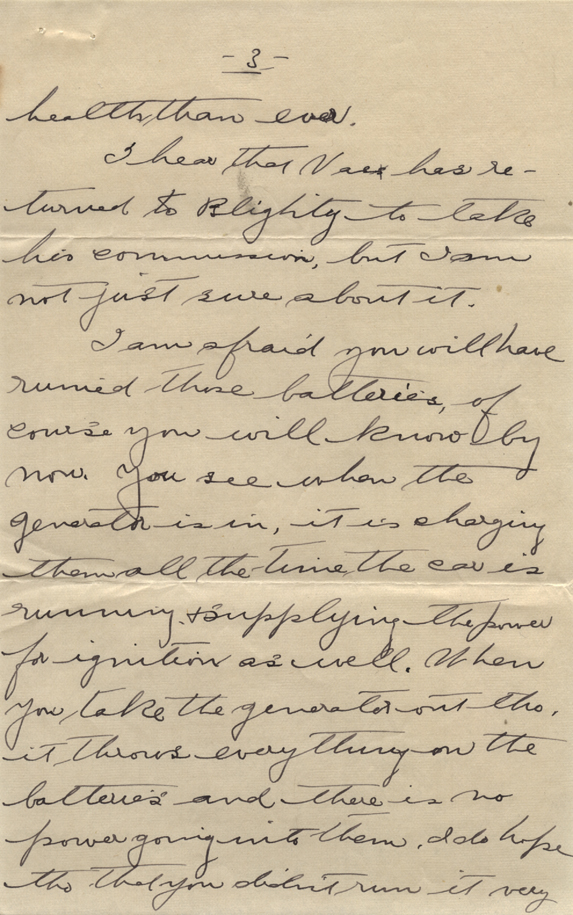 - 3 -
health than ever.
I hear that has re-
turned to Blighty to take
his commission, but I am
not just sure about it.
I am afraid you will have
ruined those batteries, of
course you will know by
now. You see when the
generator is in, it is charging
them all the time the car is
running & supplying the power
for ignition as well. When
you take the generator out tho,
it throws everything on the
batteries and there is no
power going into them. I do hope
tho that you didn't run it very